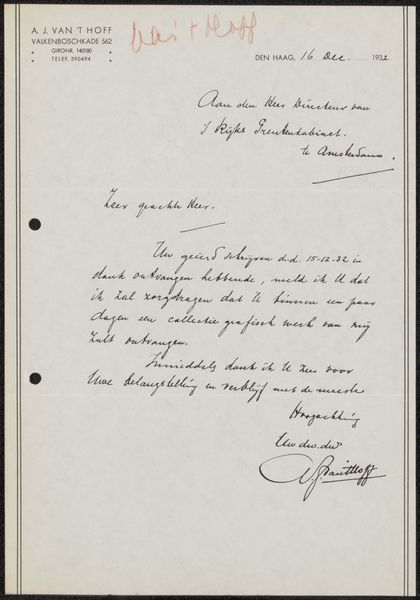 A. J. VAN 'T HOFF
VALKENBOSCHKADE 562
GIRONR. 140180
TELEF. 390494
van 't Hoff
DEN HAAG, 16 Dec. 1932
Aan den Heer Directeur van
's Rijks Prentenkabinet.
te Amsterdam.
Zeer geachte Heer.
Uw geëerd schrijven d.d. 15-12-32 in
dank ontvangen hebbende, meld ik U dat
ik zal zorgdragen dat U binnen een paar
dagen een collectie grafisch werk van mij
zult ontvangen.
Inmiddels dank ik U zeer voor
Uwe belangstelling en verblijf met de meeste
Hoogachting
Uw dw. dr.
A.J. van 't Hoff